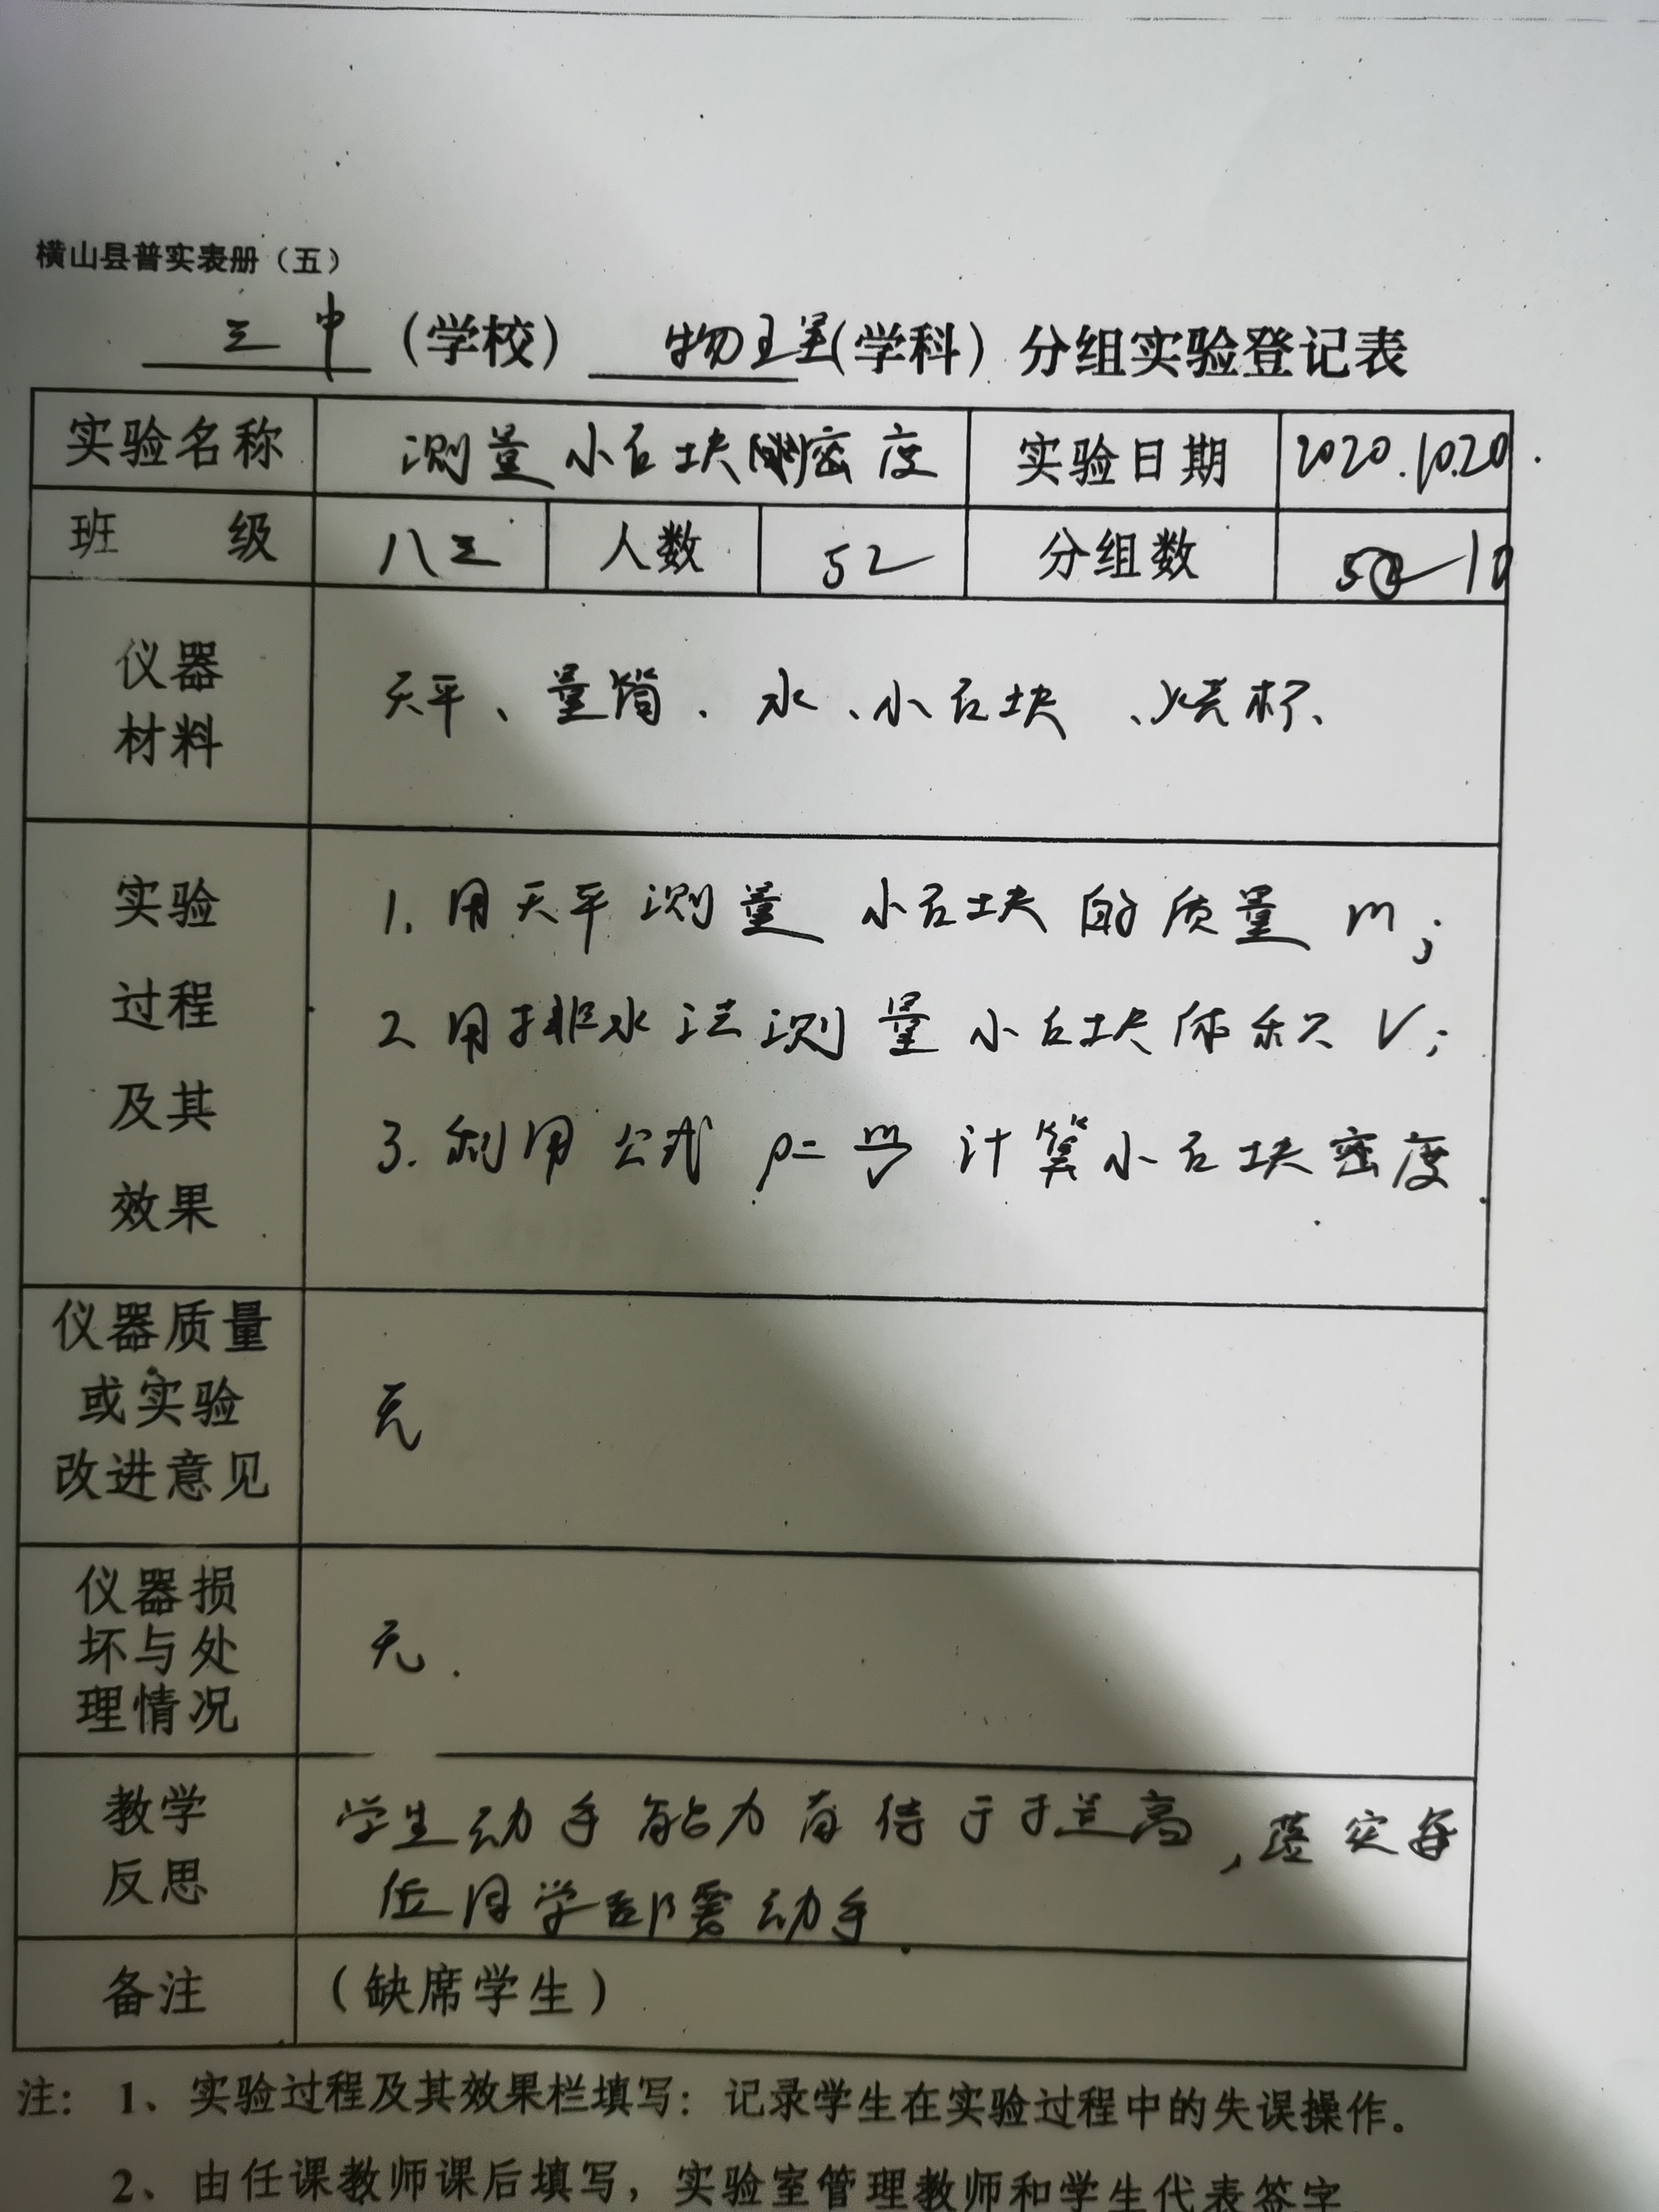 横山县普实表册（五）
三中（学校） 物理（学科）分组实验登记表
实验名称 测量小石块的密度 实验日期 2020.10.20
班 级 八三 人数 52 分组数 10
仪器
材料
天平、量筒、水、小石块、烧杯、
实验
过程
及其
效果
1. 用天平测量 小石块的质量 m；
2 用排水法测量小石块体积 V；
3. 利用公式 ρ=m/V 计算小石块密度.
仪器质量
或实验
改进意见
无
仪器损
坏与处
理情况
无.
教学
反思
学生动手能力有待于提高，落实每
位同学都需动手.
备注 （缺席学生）
注：1、实验过程及其效果栏填写：记录学生在实验过程中的失误操作。
2、由任课教师课后填写，实验室管理教师和学生代表签字